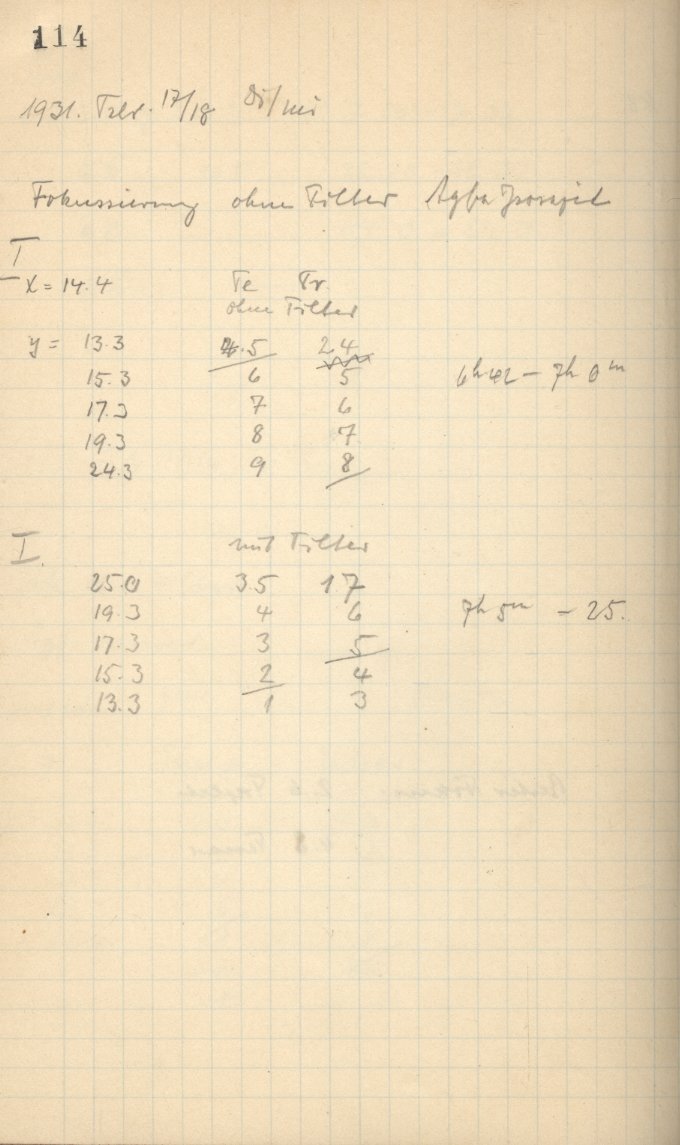 114
1931. Febr. 17/18 Di/Mi
Fokussierung ohne Filter Agfa
I
x = 14.4 Te Tr.
ohne Filter
y = 13.3 4.5 24
15.3 6 5 6h 42 - 7h 0m
17.3 7 6
19.3 8 7
24.3 9 8
I. mit Filter
25.0 35 17
19.3 4 6 7h 5m - 25.
17.3 3 5
15.3 2 4
13.3 1 3